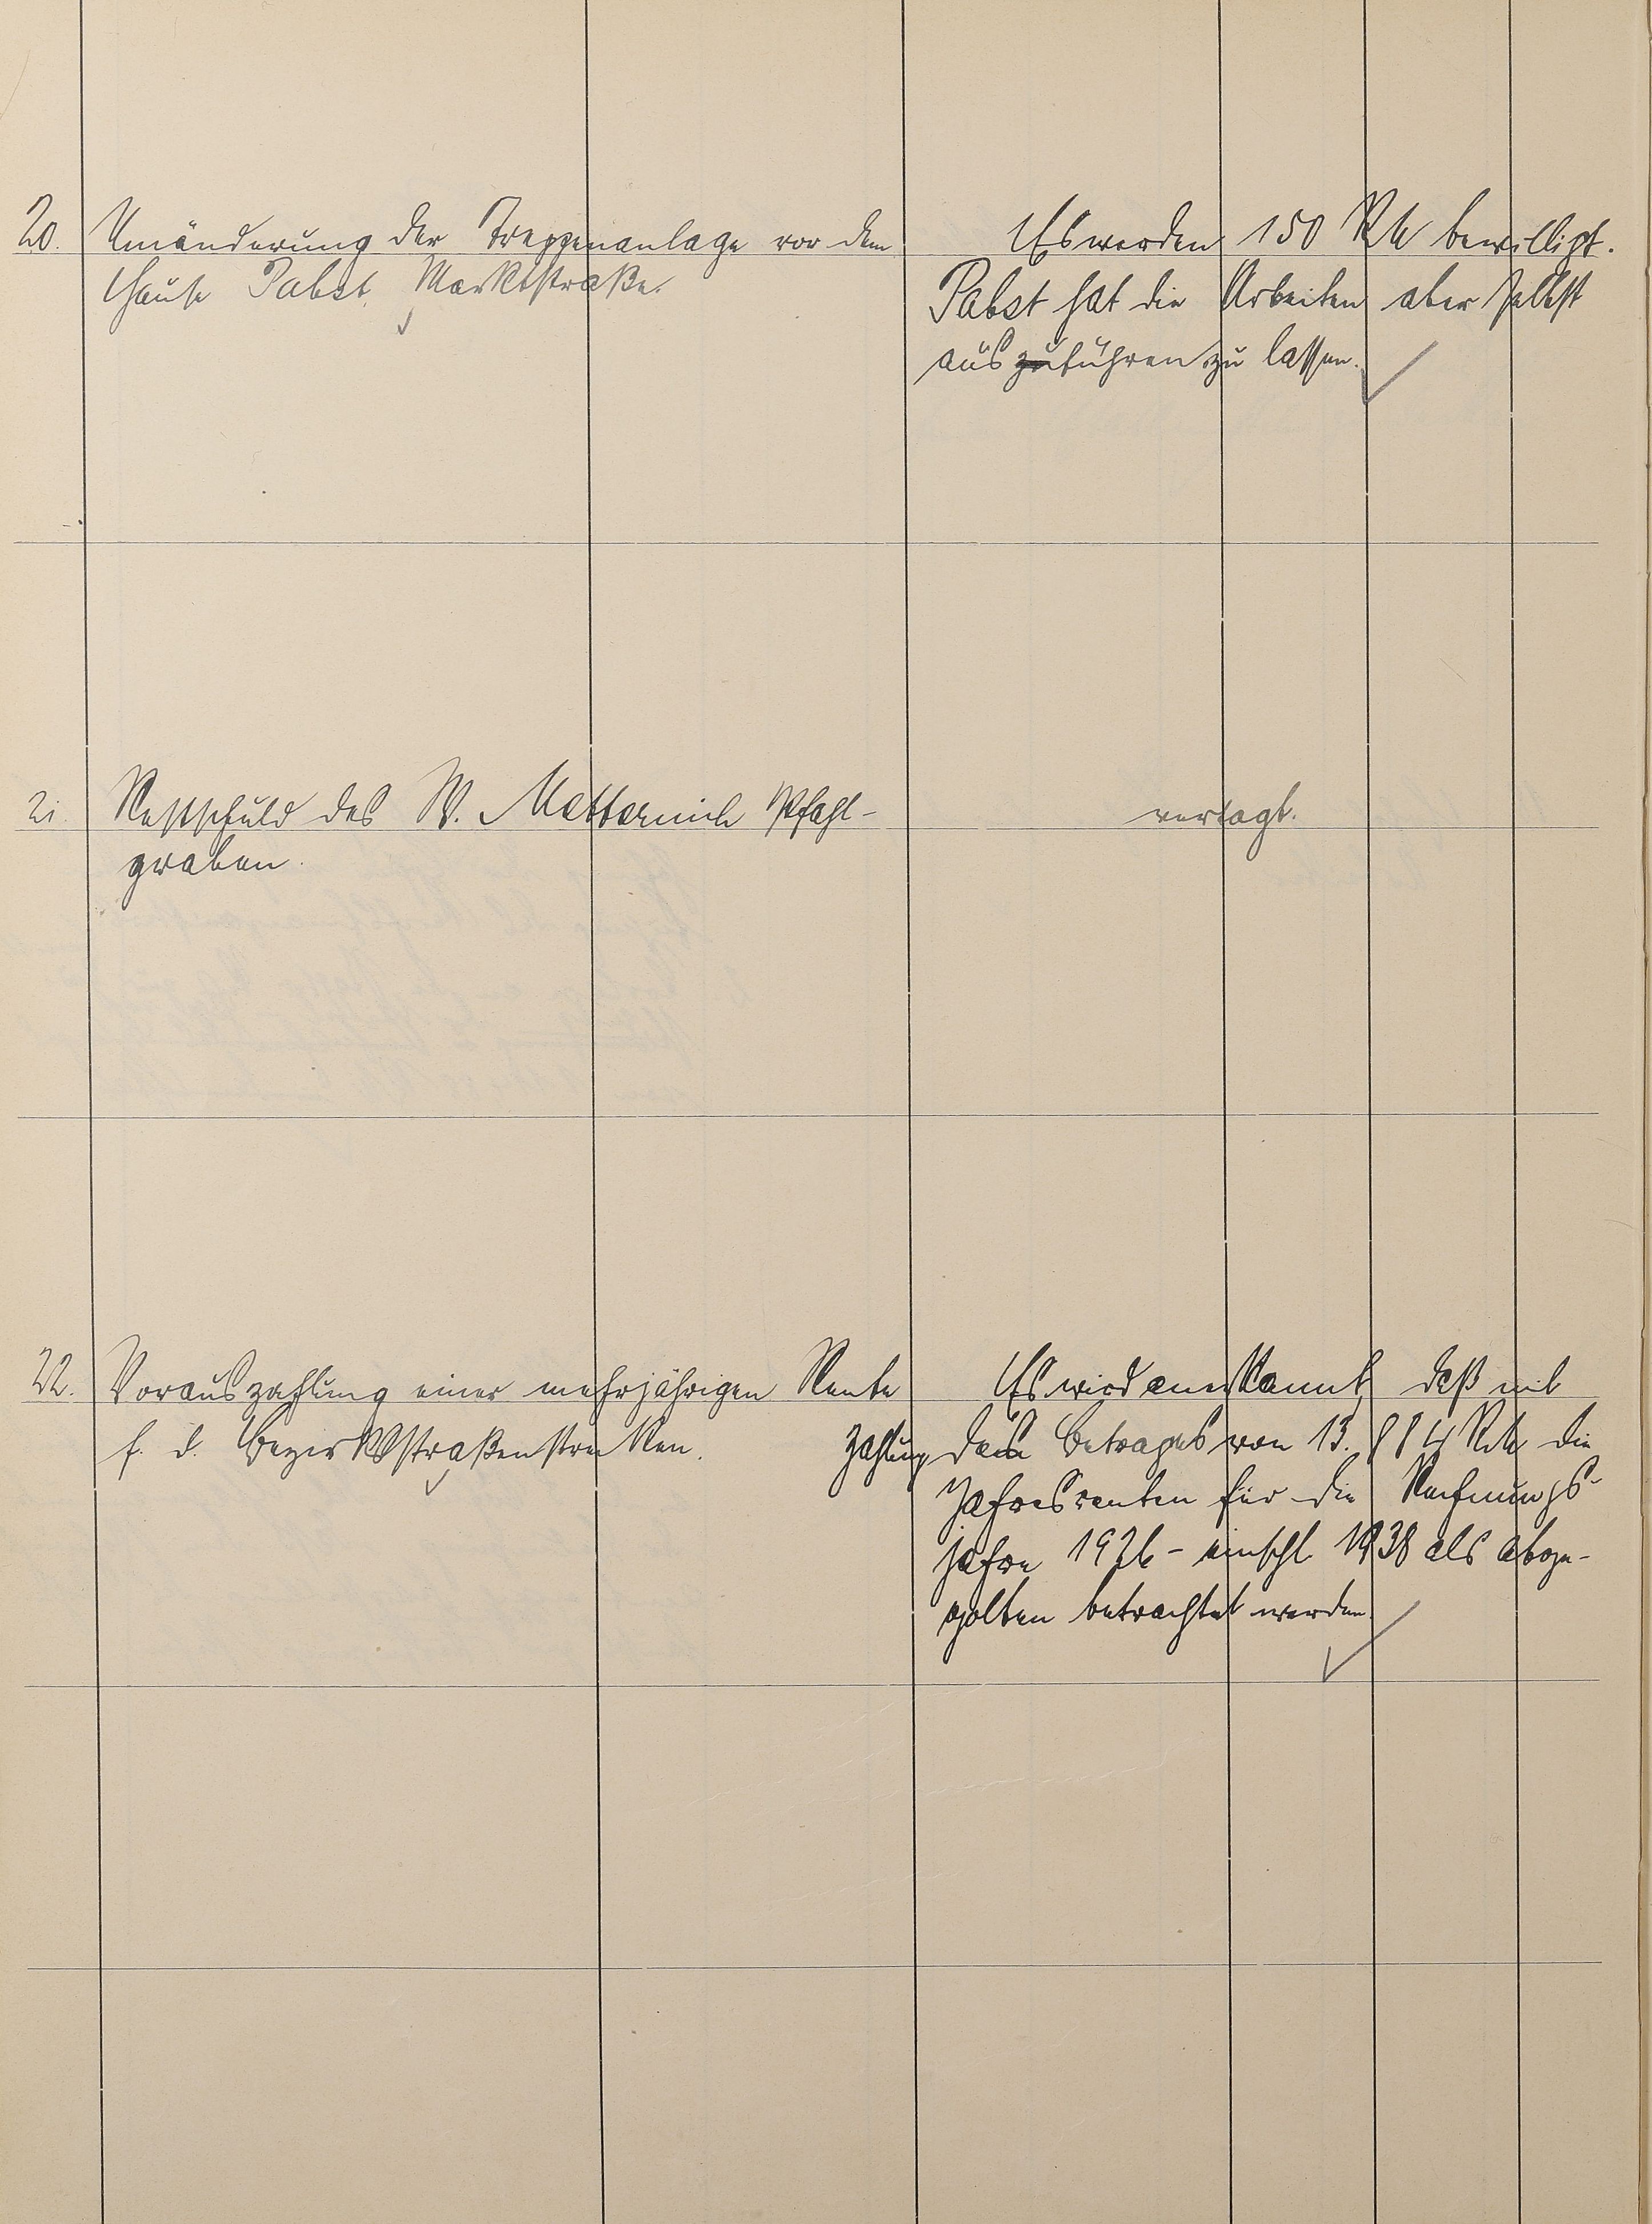 20. Umänderung der Treppenanlage vor dem
Hause Pabst, Marktstraße.
Es werden 150 RM bewilligt.
Pabst hat die Arbeiten aber selbst
ausführen zu lassen.
21. Restschuld des W. Metternich Pfahl-
graben.
vertagt.
22. Vorauszahlung einer mehrjährigen Rente
f. d. Bezirksstraßenstrecken.
Es wird anerkannt, daß mit
Zahlung des Betrages von 13.884 RM die
Jahresrenten für die Rechnungs-
jahre 1926 - einschl. 1938 als abge-
golten betrachtet werden.